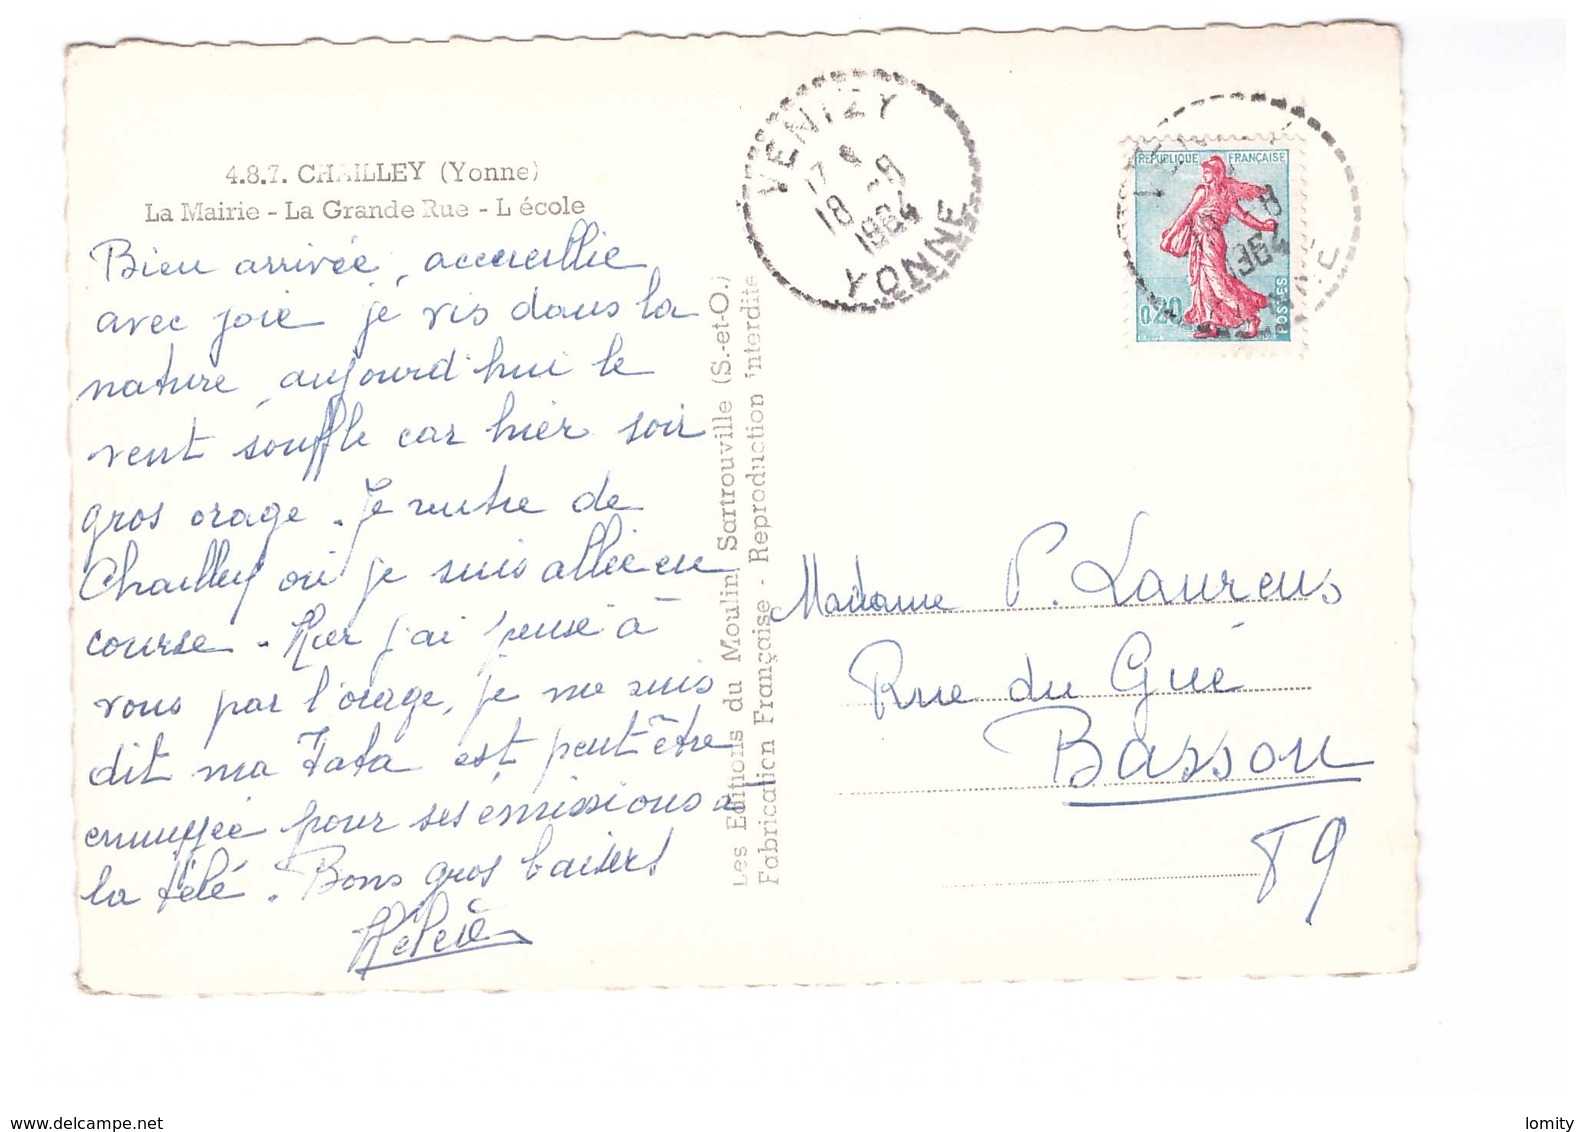 4.8.7. CHAILLEY (Yonne)
La Mairie - La Grande Rue - L'école
Bien arrivée, accueillie
avec joie je vis dans la
nature, aujourd'hui le
vent souffle car hier soir
gros orage. Je rentre de
Chailley où je suis allée en
course - Hier j'ai pensé à
vous par l'orage, je me suis
dit ma Tata est peut être
ennuyée pour ses émissions à
la télé. Bons gros baisers
Hélène
Les Editions du Moulin, Sartrouville (S.-et-O.)
Fabrication Française - Reproduction interdite
VENIZY
17 H
18 -8
1964
YONNE
REPUBLIQUE FRANÇAISE
0,20
POSTES
Madame P. Laurens
Rue du Gué
Bassou
89
www.delcampe.net
lomity